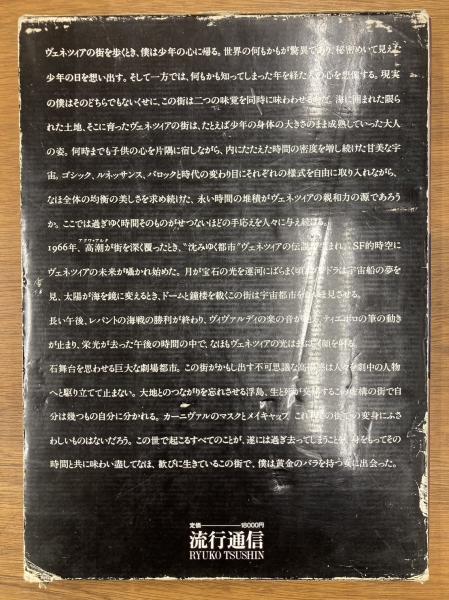 ヴェネツィアの街を歩くとき、僕は少年の心に帰る。世界の何もかもが驚異であり秘密めいて見えた
少年の日を想い出す。そして一方では、何もかも知ってしまった年を経た人の心を想像する。現実
の僕はそのどちらでもないくせに、この街は二つの味覚を同時に味わわせる。海に囲まれた限ら
れた土地、そこに育ったヴェネツィアの街は、たとえば少年の身体の大きさのまま成熟していった大人
の姿。何時までも子供の心を片隅に宿しながら、内にたたえた時間の密度を増し続けた甘美な宇
宙。ゴシック、ルネッサンス、バロックと時代の変わり目にそれぞれの様式を自由に取り入れながら、
なほ全体の均衡の美しさを求め続けた、永い時間の堆積がヴェネツィアの親和力の源であろう
か。ここでは過ぎゆく時間そのものがせつないほどの手応えを人々に与え続ける。
1966年、高潮が街を深く覆ったとき、“沈みゆく都市”ヴェネツィアの伝説が生まれ、SF的時空に
アクワ・アルタ
ヴェネツィアの未来が囁かれ始めた。月が宝石の光を運河にばらまく頃ゴンドラは宇宙船の夢を
見、太陽が海を鏡に変えるとき、ドームと鐘楼を戴くこの街は宇宙都市を見させる。
長い午後、レパントの海戦の勝利が終わり、ヴィヴァルディの楽の音が、ティエポロの筆の動き
が止まり、栄光が去った午後の時間の中で、なほもヴェネツィアの光は
石舞台を思わせる巨大な劇場都市。この街がかもし出す不可思議な高揚感は人々を劇中の人物
へと駆り立てて止まない。大地とのつながりを忘れさせる浮島、生と死が交錯するこの虚構の街で自
分は幾つもの自分に分かれる。カーニヴァルのマスクとメイキャップ、これほどこの街での変身にふさ
わしいものはないだろう。この世で起こるすべてのことが、遂には過ぎ去ってしまうことを、身をもってその
時間と共に味わい盡してなほ、歓びに生きているこの街で、僕は黄金のバラを持つ女に出会った。
定価 18000円
流行通信
RYUKO TSUSHIN